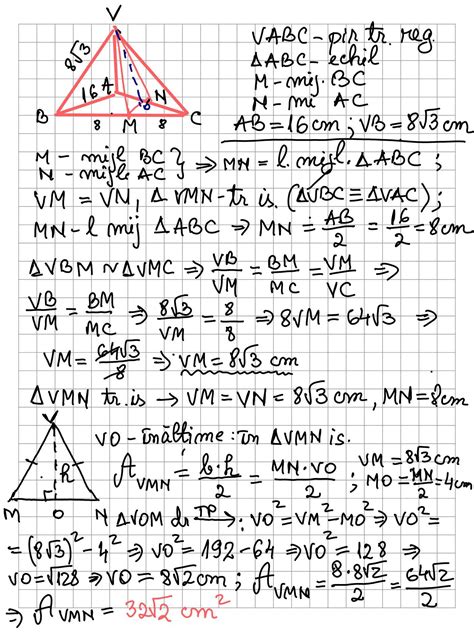 V
8√3
16
A
N
B
8
M
8
C
VABC - pir tr. reg.
ΔABC - echil
M - mij. BC
N - mi AC
AB = 16 cm ; VB = 8√3 cm
M - mijl BC } ⇒ MN = l. mijl. ΔABC ;
N - mijl AC
VM = VN, ΔVMN - tr is. (ΔVBC ≡ ΔVAC) ;
MN - l mij ΔABC ⇒ MN = AB/2 = 16/2 = 8cm
ΔVBM ~ ΔVMC ⇒ VB/VM = BM/MC = VM/VC ⇒
VB/VM = BM/MC ⇒ 8√3/VM = 8/8 ⇒ 8VM = 64√3 ⇒
VM = 64√3/8 ⇒ VM = 8√3 cm
ΔVMN tr. is → VM = VN = 8√3 cm, MN = 8cm
V
h
M O N
VO - înălțime în ΔVMN is.
A VMN = b·h/2 = MN·VO/2 ; VM = 8√3 cm
MO = MN/2 = 4cm
ΔVOM dr TP→ : VO² = VM² - MO² ⇒ VO² =
= (8√3)² - 4² ⇒ VO² = 192 - 64 ⇒ VO² = 128 ⇒
VO = √128 ⇒ VO = 8√2 cm ; A VMN = 8·8√2/2 = 64√2/2
⇒ A VMN = 32√2 cm²